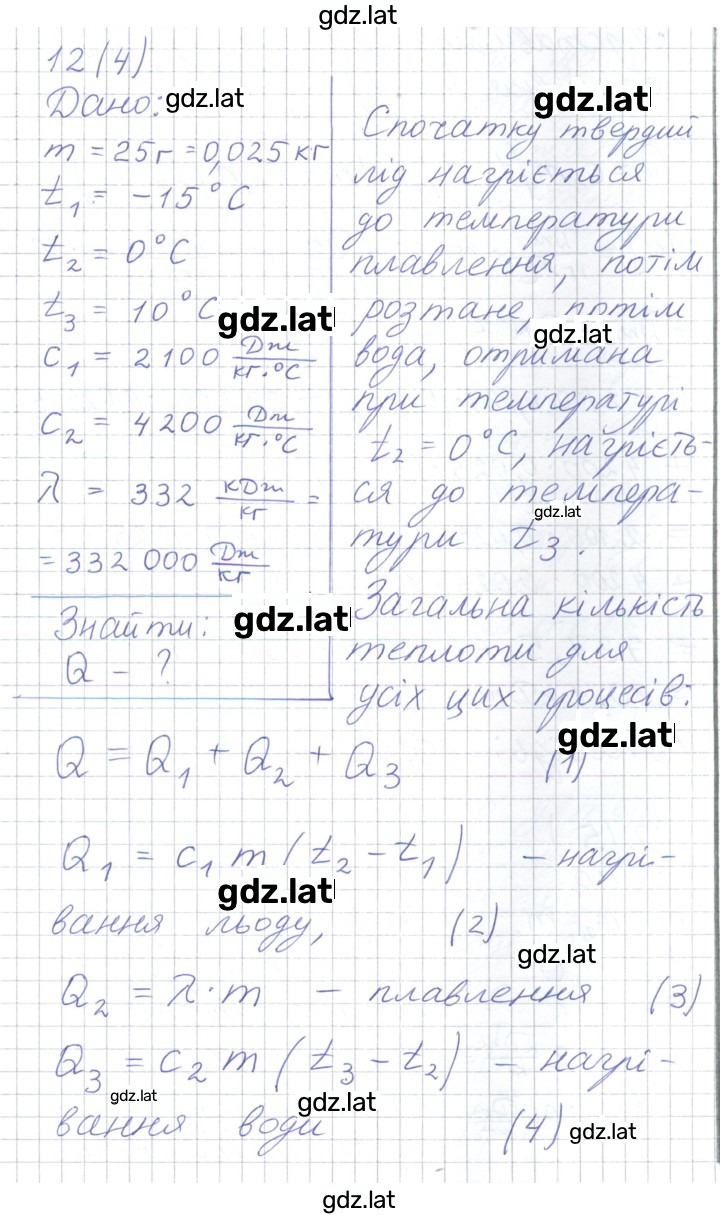 gdz.lat
12(4)
Дано: gdz.lat
m = 25г = 0,025 кг
t₁ = -15°C
t₂ = 0°C
t₃ = 10°C
gdz.lat
c₁ = 2100 Дж/кг·°C
c₂ = 4200 Дж/кг·°C
λ = 332 кДж/кг =
= 332 000 Дж/кг
Знайти: gdz.lat
Q - ?
gdz.lat
Спочатку твердий
лід нагріється
до температури
плавлення, потім
розтане, потім
gdz.lat
вода, отримана
при температурі
t₂ = 0°C, нагрієть-
ся до темпера-
gdz.lat
тури t₃.
Загальна кількість
теплоти для
усіх цих процесів:
gdz.lat
Q = Q₁ + Q₂ + Q₃ (1)
Q₁ = c₁ m (t₂ - t₁) - нагрі-
gdz.lat
вання льоду, (2)
gdz.lat
Q₂ = λ·m - плавлення (3)
Q₃ = c₂ m (t₃ - t₂) - нагрі-
gdz.lat
gdz.lat
вання води (4) gdz.lat
gdz.lat